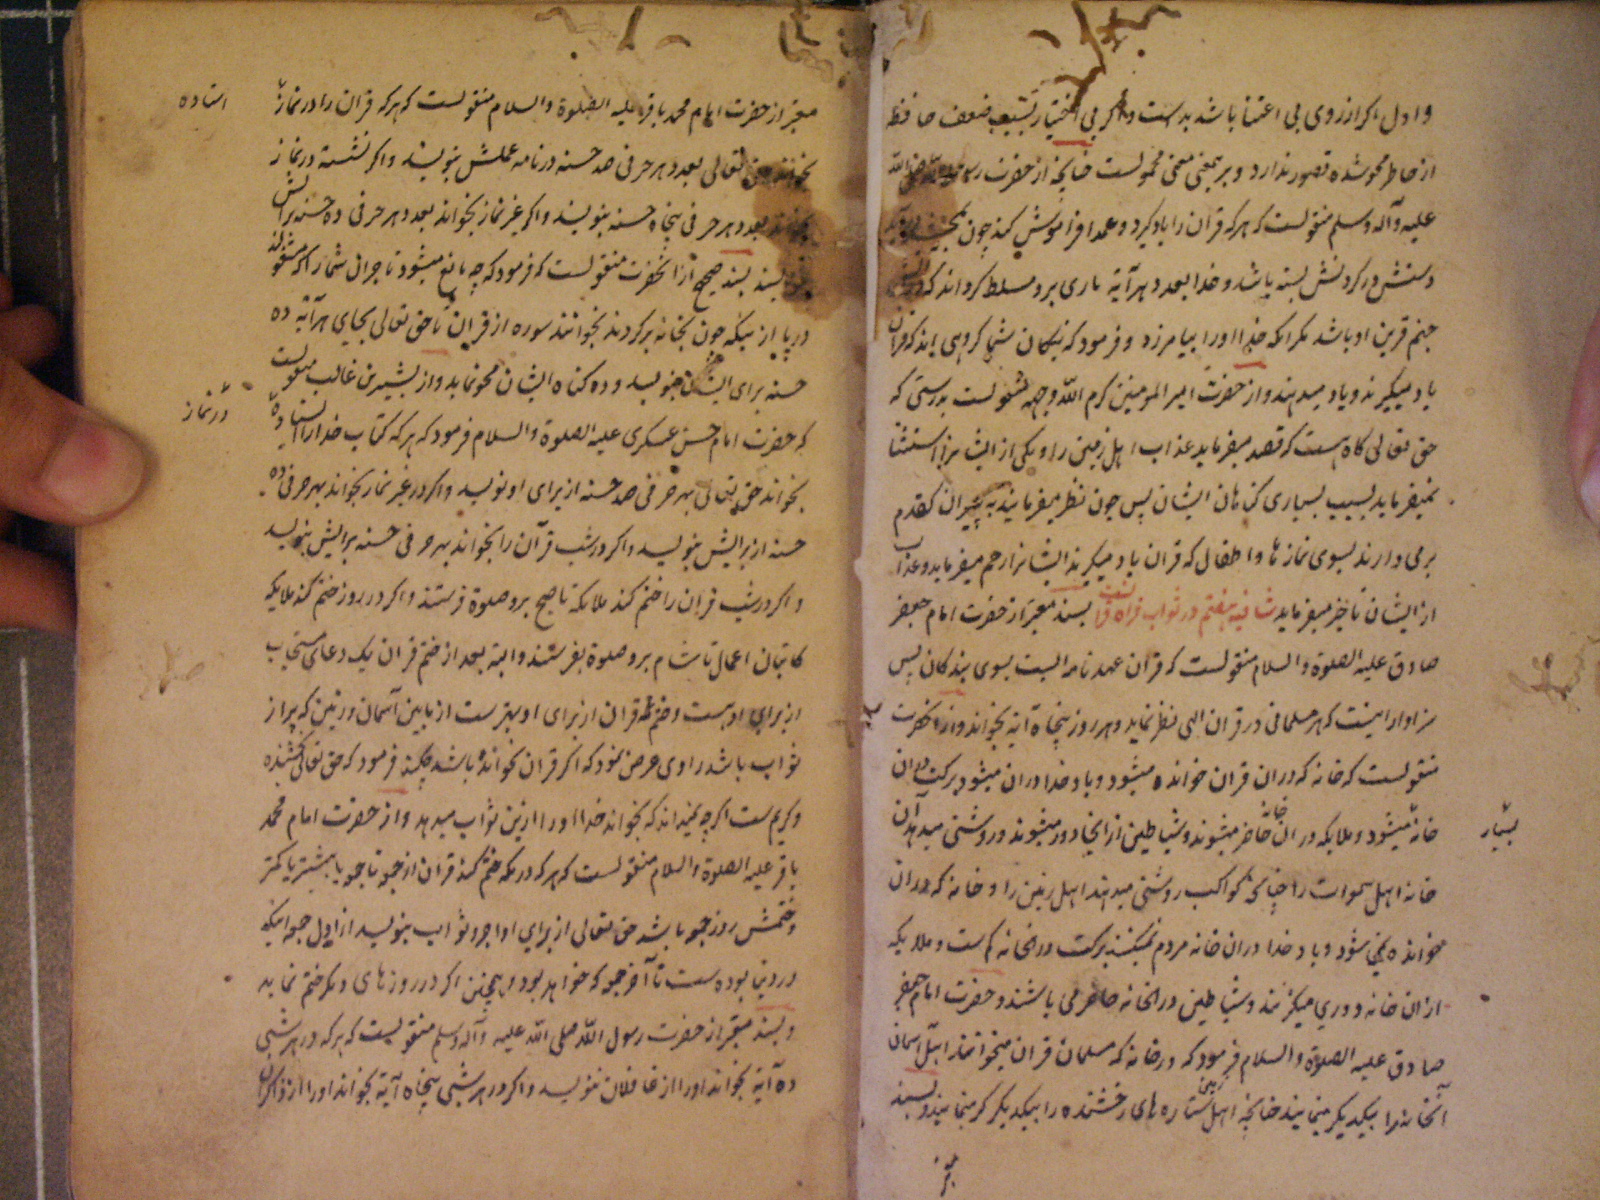 و اول اکر از روی بی اعتنا باشد بدست و اکر بی اختیار بسبب ضعف حافظه
از خاطر محو شده تصور ندارد و بر معنی محمولست چنانچه از حضرت رسالت صلی الله
علیه و آله و سلم منقولست که هر که قران را یاد کیرد و عمدا فراموش کند چون
دستش در کردنش بسته باشد و خدا بعدد هر آیة ماری برو مسلط کرداند که در
جهنم قرین او باشد مکر انکه خدا او را بیامرزد و فرمود که نیکان شما کروهی اند که قران
یاد میکیرند و یاد میدهند و از حضرت امیر المومنین کرم الله وجهه منقولست بدرستی که
حق تعالی کاه هست که قصد میفرماید عذاب اهل زمین را و یکی از ایشانرا استثنا
نمیفرماید بسبب بسیاری کناهان ایشان پس چون نظر میفرماید به پیران که قدم
برمی دارند بسوی نمازها و اطفال که قران یاد میکیرند ایشانرا رحم میفرماید و عذاب
از ایشان تاخیر میفرماید شانیه هفتم در ثواب قراءة قران بسند معتبر از حضرت امام جعفر
صادق علیه الصلوة و السلام منقولست که قران عهد نامه الهیست بسوی بندکان پس
سزاوار اینست که هر مسلمانی در قران الهی نظر نماید و هر روز پنجاه آیة بخواند و از آنحضرت
منقولست که خانه که در ان قران خوانده میشود و یاد خدا در ان میشود برکت در ان
خانه میشود و ملایکه در ان خانه حاضر میشوند و شیاطین از انجا دور میشوند و روشنی میدهد آن
بسیار
خانه اهل سموات را چنانکه کواکب روشنی میدهند اهل زمین را و خانه که در ان
خوانده نمی شود و یاد خدا در ان خانه مردم نمیکنند برکت در انخانه کم ست و ملایکه
از ان خانه دوری میکزینند و شیاطین در انخانه حاضر می باشند و حضرت امام جعفر
صادق علیه الصلوة و السلام فرمود که در خانه که مسلمان قران میخوانند اهل آسمان
آنخانه را بیکدیکر مینمایند چنانچه اهل زمین ستاره های رخشنده را بیکدیکر مینمایند و بسند
معتبر از حضرت امام محمد باقر علیه الصلوة و السلام منقولست که هر که قران را در نماز
استاده
بخواند حق تعالی بعدد هر حرفی صد حسنه در نامه عملش بنویسد و اکر نشسته در نماز
بخواند بعدد هر حرفی پنجاه حسنه بنویسد و اکر غیر نماز بخواند بعدد هر حرفی ده حسنه برایش
بنویسد بسند صحیح از آنحضرت منقولست که فرمود که چه مانع میشود تاجران شما را که مشغولند
در بازار نیکه چون بخانه برکردند بخوانند سوره از قران تا حق تعالی بجای هر آیة ده
حسنه برای ایشان بنویسد و ده کناه ایشان محو نماید و از بشیر بن غالب منقولست
که حضرت امام حسن عسکری علیه الصلوة و السلام فرمود که هر که کتاب خدا را استاده
در نماز
بخواند حق تعالی بهر حرفی صد حسنه از برای او نویسد و اکر در غیر نماز بخواند بهر حرفی ده
حسنه از برایش بنویسد و اکر در شب قرآن را بخواند بهر حرفی حسنه برایش بنویسد
و اکر در شب قران را ختم کند ملایکه تا صبح برو صلوة فرستند و اکر در روز ختم کند ملایکه
کاتبان اعمال تا شام برو صلوة بفرستند و البته بعد از ختم قران یک دعای مستجاب
از برای او هست و ختم قران از برای او بهتر ست از مابین آسمان و زمین که پر از
ثواب باشد راوی عرض نمود که اکر قران نخوانده باشد فرمود که حق تعالی بخشنده
و کریم ست اکر چه نمیداند که بخواند خدا او را ازین ثواب میدهد و از حضرت امام محمد
باقر علیه الصلوة و السلام منقولست که هر که در مکه ختم کند قران از جمعه تا جمعه یا بیشتر یا کمتر
و ختمش روز جمعه باشد حق تعالی از برای او اجر و ثواب بنویسد از اول جمعه اینکه
در دنیا بوده ست تا آخر جمعه که خواهد بود و همچنین اکر در روزهای دیکر ختم نماید
و بسند معتبر از حضرت رسول الله صلی الله علیه و آله و سلم منقولست که هر که در هر شبی
ده آیة بخواند او را از غافلان ننویسد و اکر در هر شبی پنجاه آیة بخواند او را از ذاکران